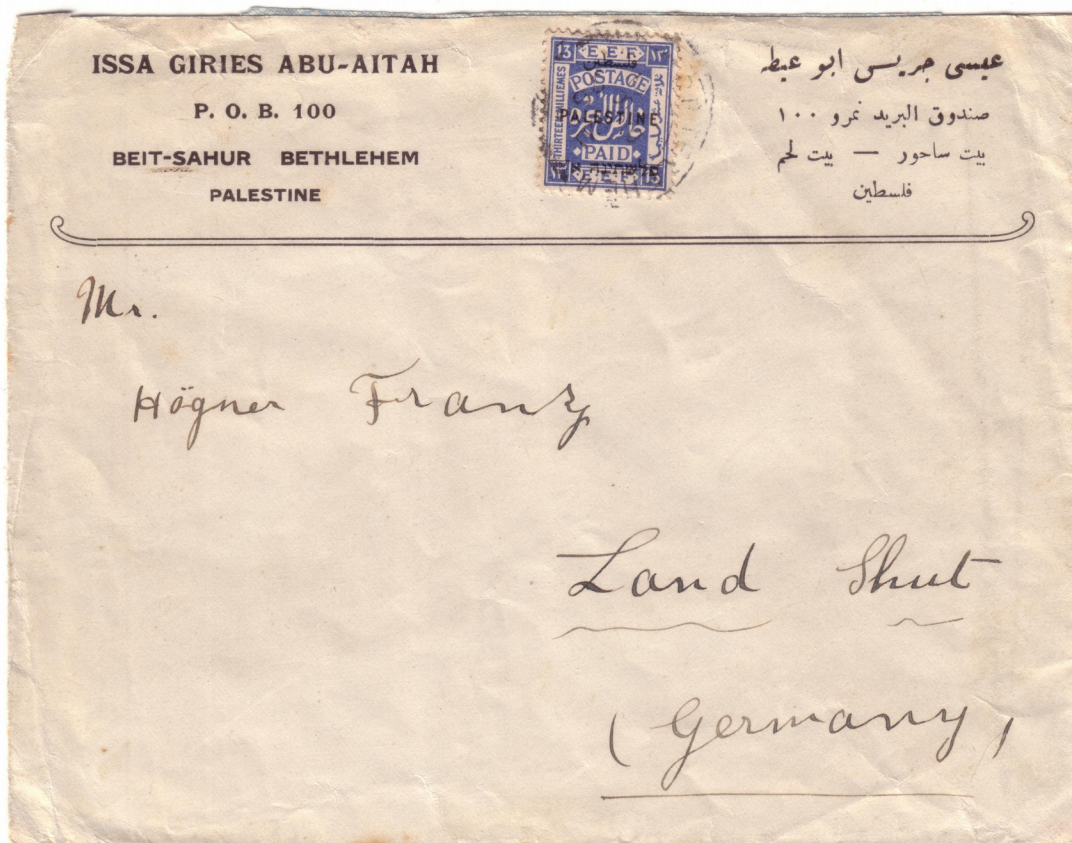 ISSA GIRIES ABU-AITAH
P. O. B. 100
BEIT-SAHUR BETHLEHEM
PALESTINE
13 E.E.F. ١٣
فلسطين
POSTAGE
THIRTEEN MILLIEMES
PALESTINE
خالص الاجرة
PAID
E.E.F. 13
عيسى جريس ابو عيطه
صندوق البريد نمرو ١٠٠
بيت ساحور — بيت لحم
فلسطين
Mr.
Högner Franz
Land Shut
(Germany)